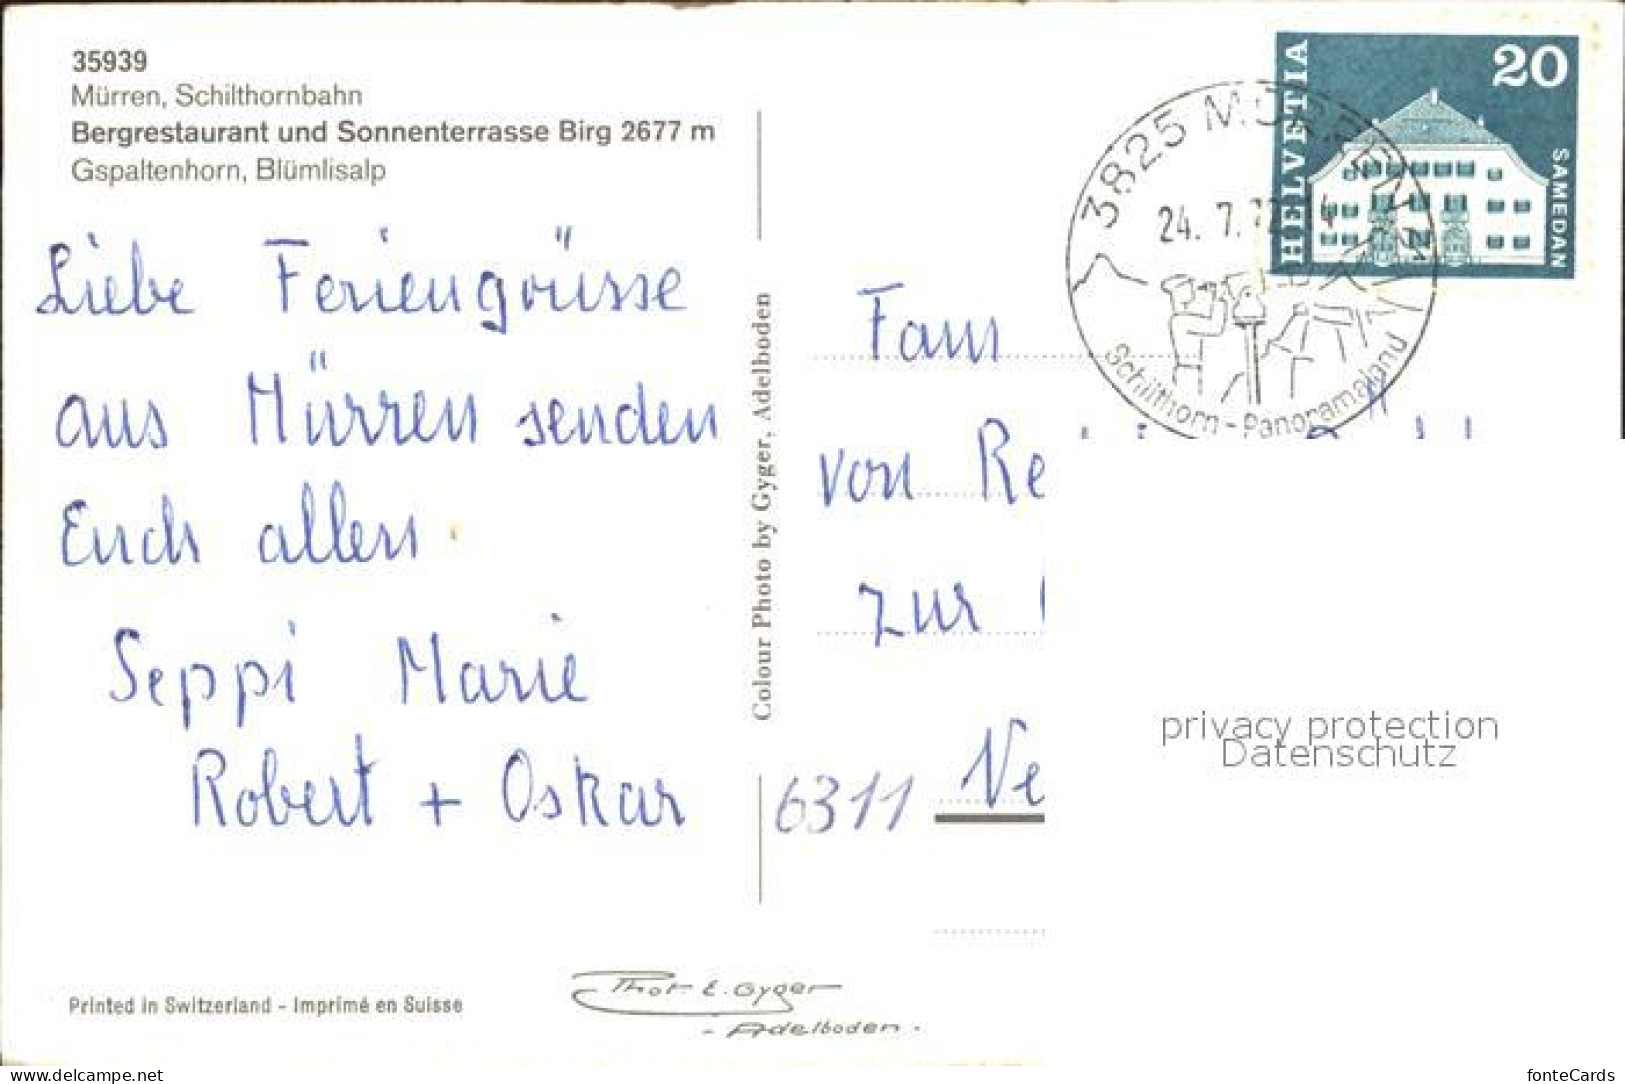 35939
Mürren, Schilthornbahn
Bergrestaurant und Sonnenterrasse Birg 2677 m
Gspaltenhorn, Blümlisalp
Liebe Feriengrüsse
aus Mürren senden
Euch allen.
Seppi Marie
Robert + Oskar
Printed in Switzerland - Imprimé en Suisse
Colour Photo by Gyger, Adelboden
Phot. E. Gyger
- Adelboden.
HELVETIA
20
SAMEDAN
3825 MÜRREN
24. 7.
Schilthorn-Panoramaland
Fam
von Re
zur
6311 Ve
privacy protection
Datenschutz
www.delcampe.net
fonteCards